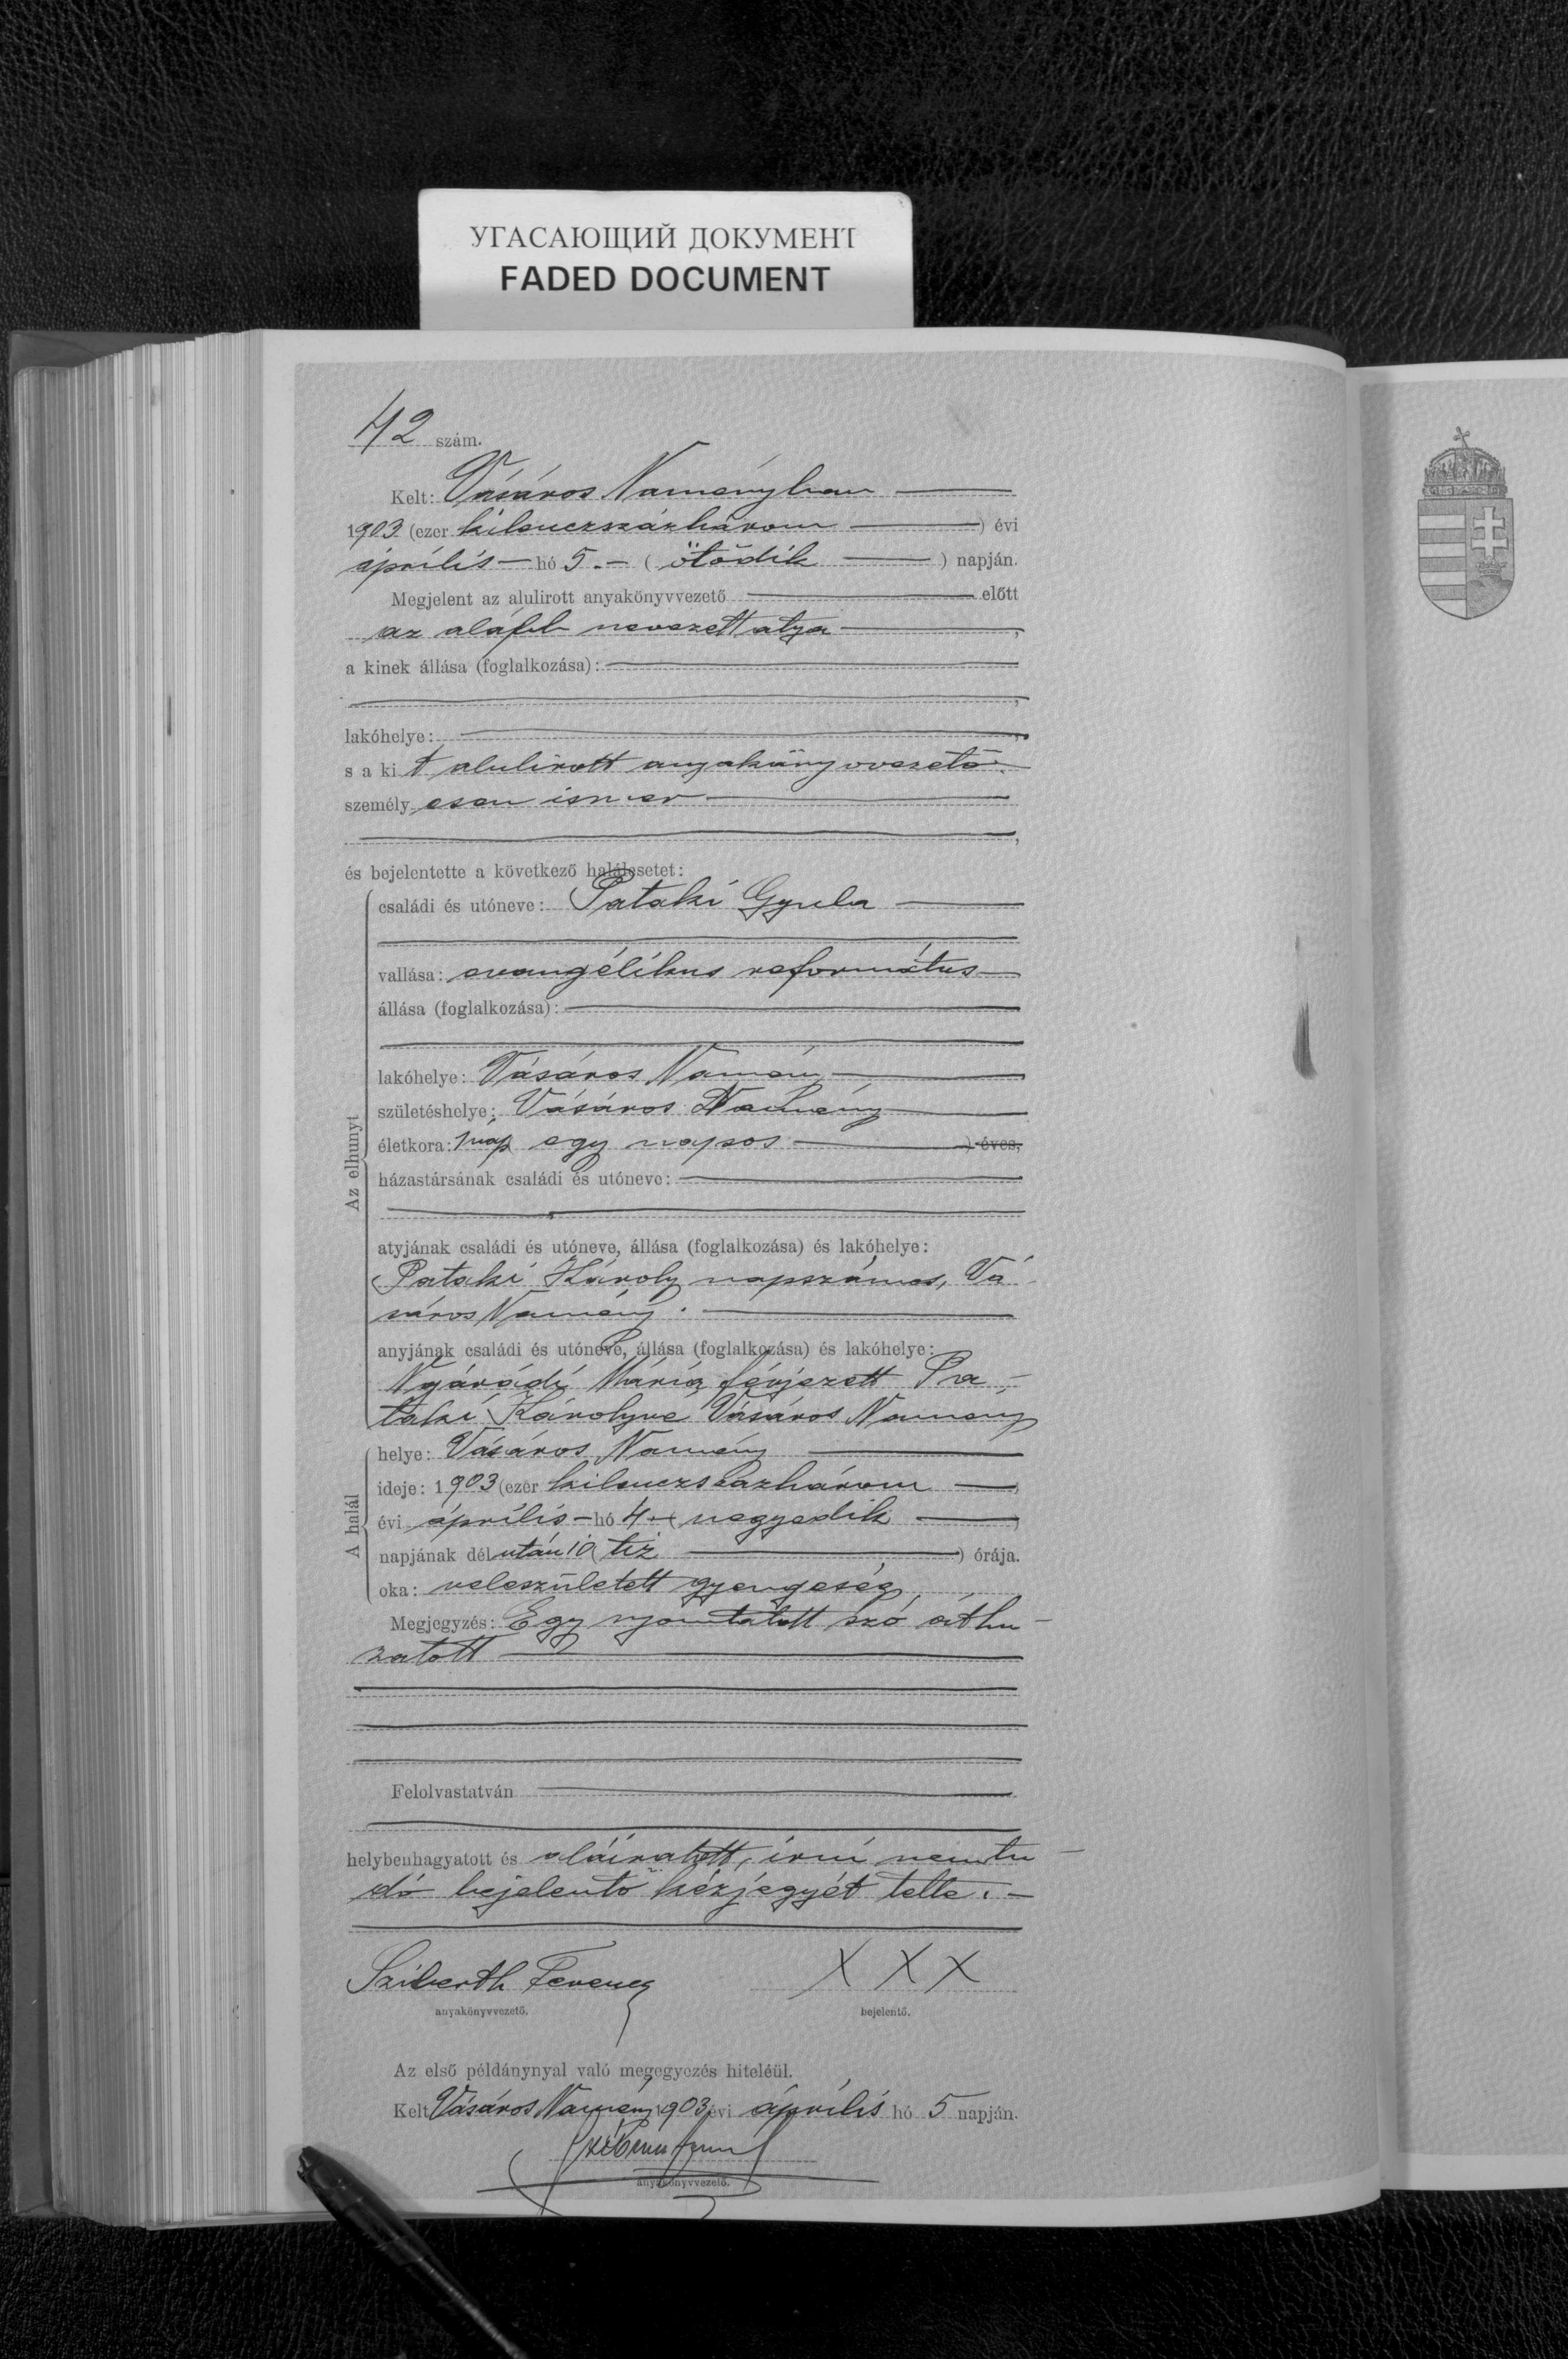 УГАСАЮЩИЙ ДОКУМЕНТ
FADED DOCUMENT
42 szám.
Kelt: Vásáros Naményban
1903 (ezer kilenczszázhárom ) évi
április hó 5. ( ötödik ) napján.
Megjelent az alulirott anyakönyvvezető előtt
az alább nevezett atya ,
a kinek állása (foglalkozása):
,
lakóhelye: ,
s a kit alulirott anyakönyvvezető
személyesen ismer
,
és bejelentette a következő halálesetet:
Az elhunyt
családi és utóneve: Pataki Gyula
vallása: evangélikus református
állása (foglalkozása):
lakóhelye: Vásáros Namény
születéshelye: Vásáros Namény
életkora: 1 nap egy napos ) éves,
házastársának családi és utóneve:
atyjának családi és utóneve, állása (foglalkozása) és lakóhelye:
Pataki Károly napszámos, Vá-
sáros Namény.
anyjának családi és utóneve, állása (foglalkozása) és lakóhelye:
Nyárádi Mária férjezett Pa-
taki Károlyné Vásáros Namény
A halál
helye: Vásáros Namény
ideje: 1903 (ezer kilenczszázhárom )
évi április hó 4 ( negyedik )
napjának délután 10 ( tiz ) órája.
oka: veleszületett gyengeség
Megjegyzés: Egy nyomtatott szó áthu-
zatott
Felolvastatván
helybenhagyatott és aláiratott, irni nem tu-
dó bejelentő kézjegyét tette.
Sziberth Ferencz X X X
anyakönyvvezető. bejelentő.
Az első példánynyal való megegyezés hiteléül.
Kelt Vásáros Namény 1903 évi április hó 5 napján.
anyakönyvvezető.